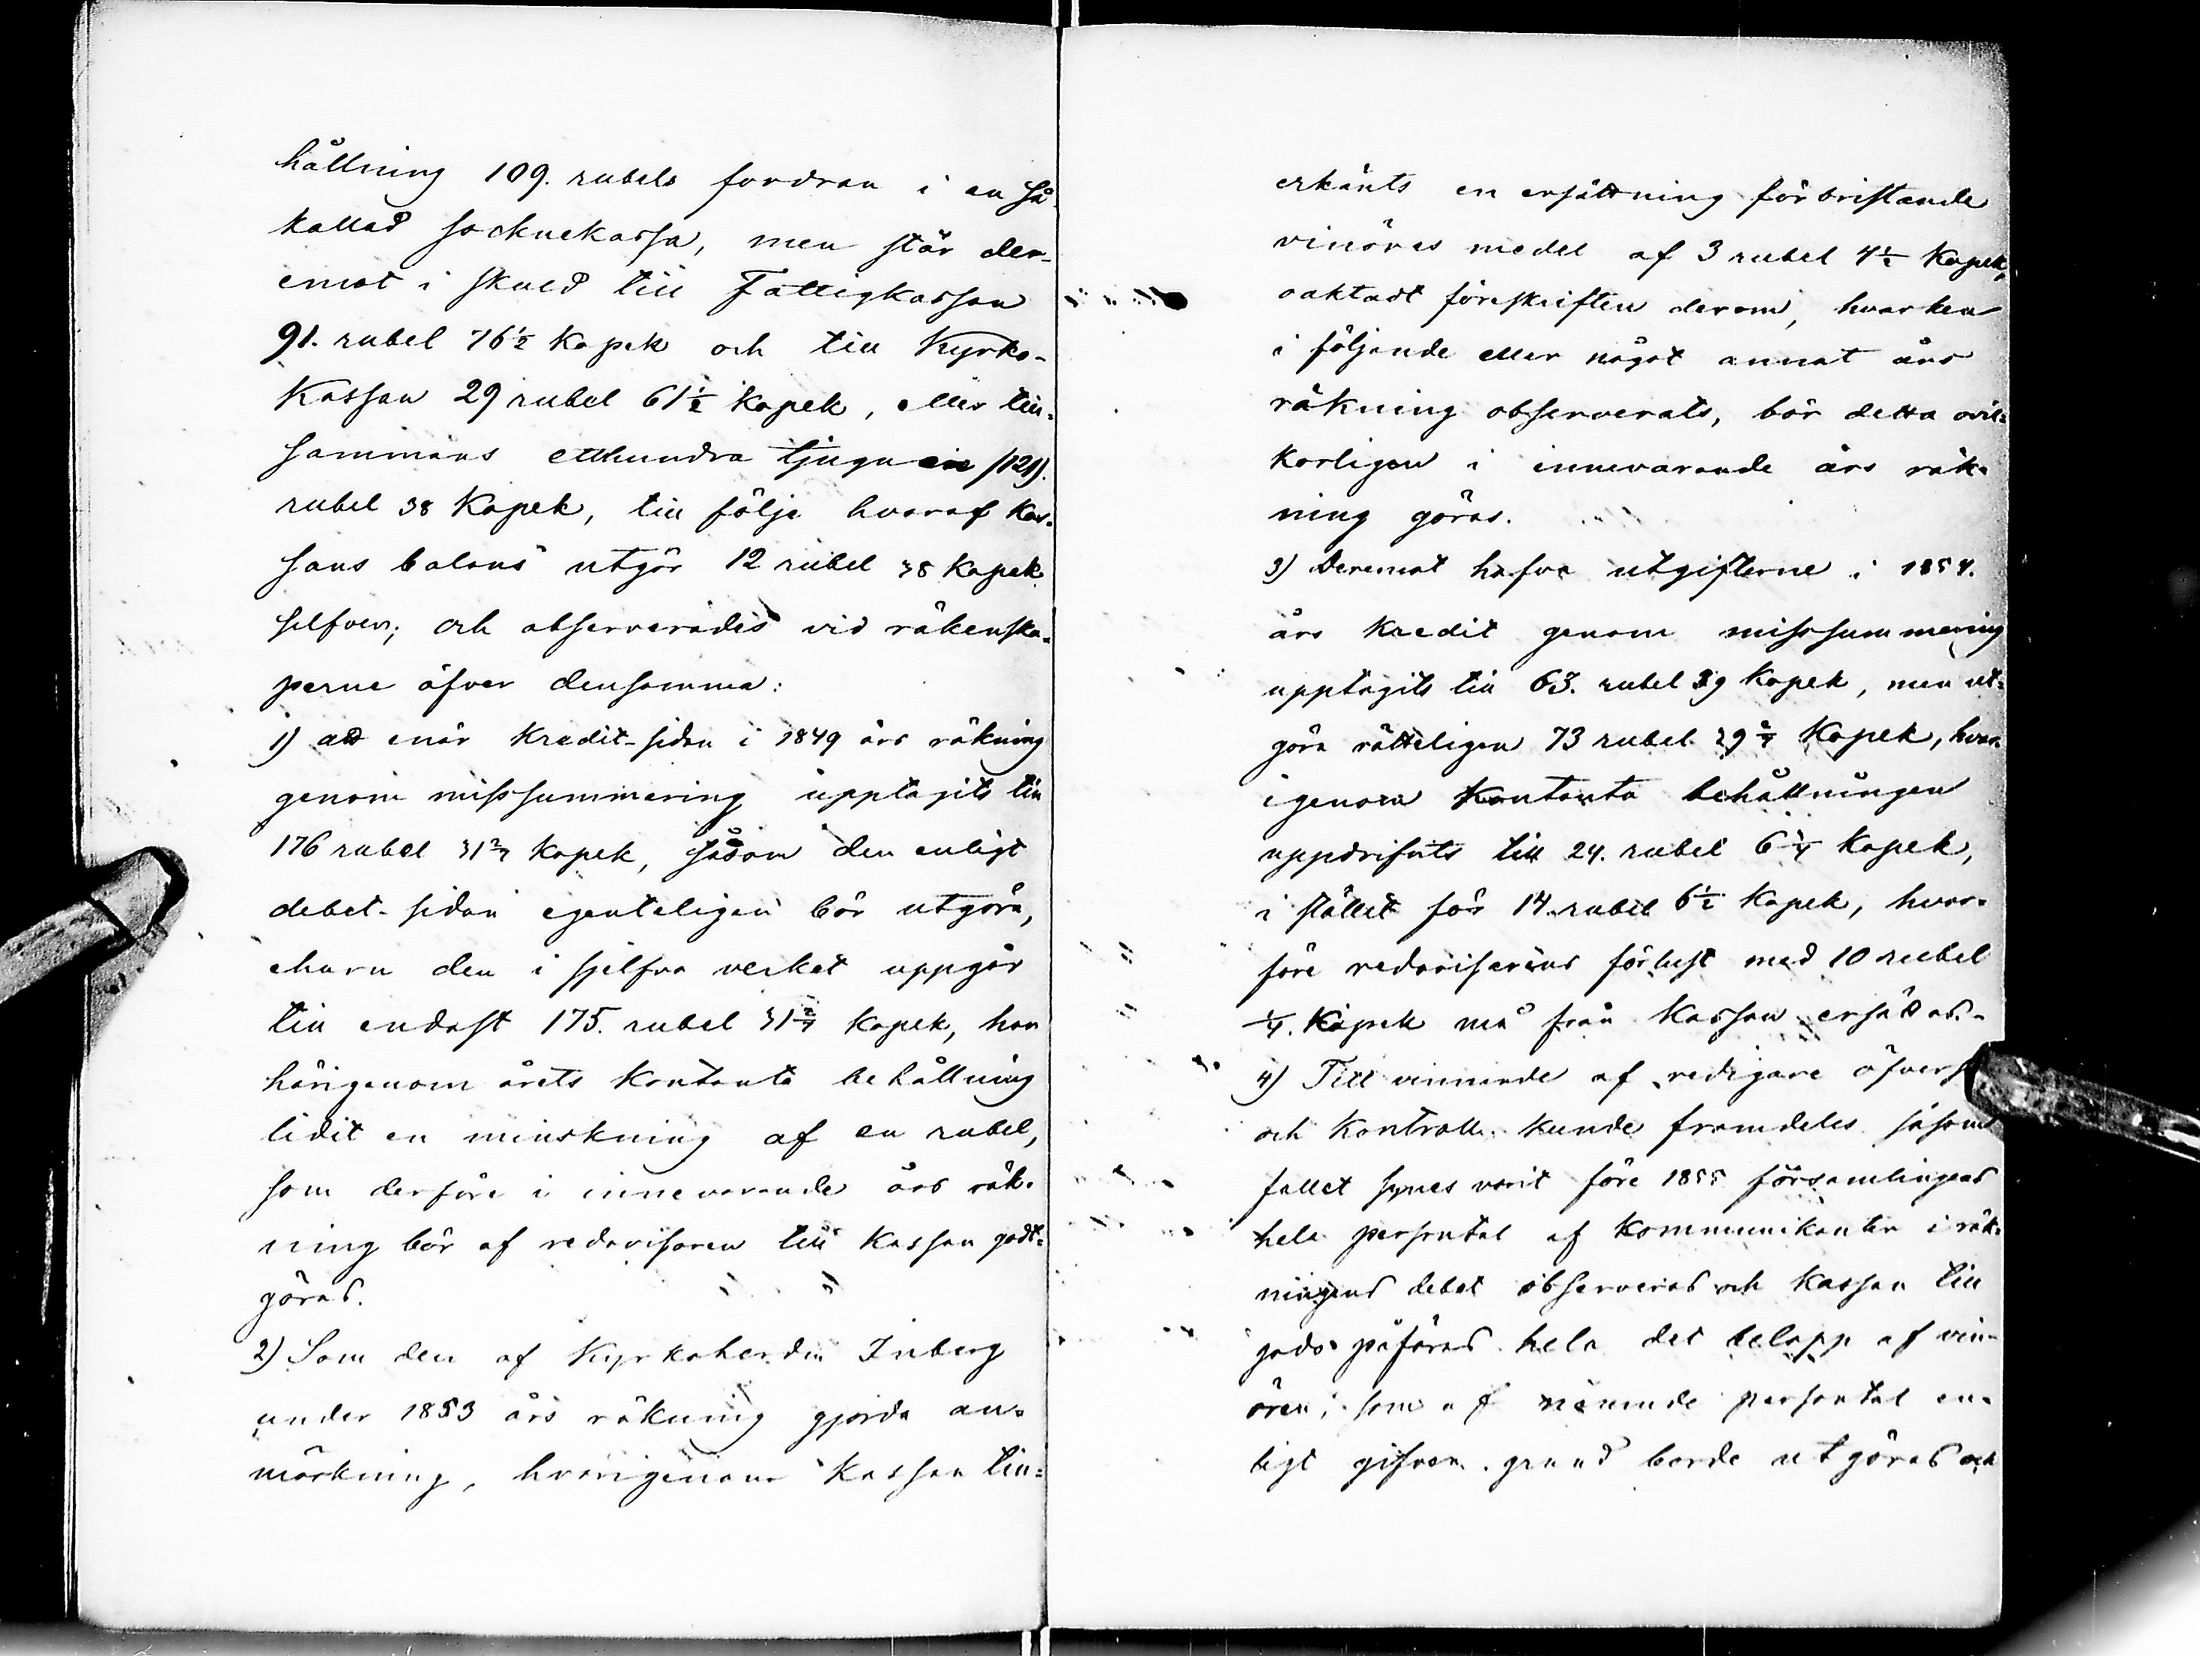 hållning 109. rubels fordran i en så
kallad socknekassa, men står der-
emot i skuld till Fattigkassan
91. rubel 76½ kopek och till Kyrko-
Kassan 29 rubel 61½ kopek, eller till-
sammans etthundra tjugu en /121/.
rubel 38 kopek, till följe hvaraf kas-
sans balans utgör 12 rubel 38 kopek
silfver; och observerades vid räkenska-
perne öfver densamma:
1) att enär kredit-sidan i 1849 års räkning
genom missummering upptagits till
176 rubel 31 2/7 kopek, såsom den enligt
debet-sidan egenteligen bör utgöra,
ehuru den i sjelfva verket uppgår
till endast 175. rubel 31 2/7 kopek, har
härigenom årets kontanta behållning
lidit en minskning af en rubel,
som derföre i innevarande års räk-
ning bör af redovisaren till kassan godt-
göras.
2) Som den af Kyrkoherden Inberg
under 1853 års räkning gjorda an-
märkning, hvarigenom kassan till-
erkänts en ersättning för bristande
vinöres medel af 3 rubel 4½ kopek,
oaktadt föreskriften derom, hvarken
i följande eller något annat års
räkning observerats, bör detta ovil-
korligen i innevarande års räk-
ning göras.
3) Deremot hafva utgifterne i 1854.
års kredit genom missummering
upptagits till 63. rubel 29 kopek, men ut-
göra rätteligen 73 rubel 29 2/7 kopek, hvar-
igenom kontanta behållningen
uppdrifvits till 24. rubel 6 kopek,
i stället för 14. rubel 6½ kopek, hvar-
före redovisarens förlust med 10 rubel
¼. kopek må från kassan ersättas.-
4) Till vinnande af redigare
och kontroll. kunde framdeles såsom
fallet synes varit före 1855 församlingens
hela persontal af kommunikanter i räk-
ningens debet observeras och kassan till
godo påföras hela det belopp af vin-
ören, som af nämnde persontal en-
ligt gifven grund borde utgöras och